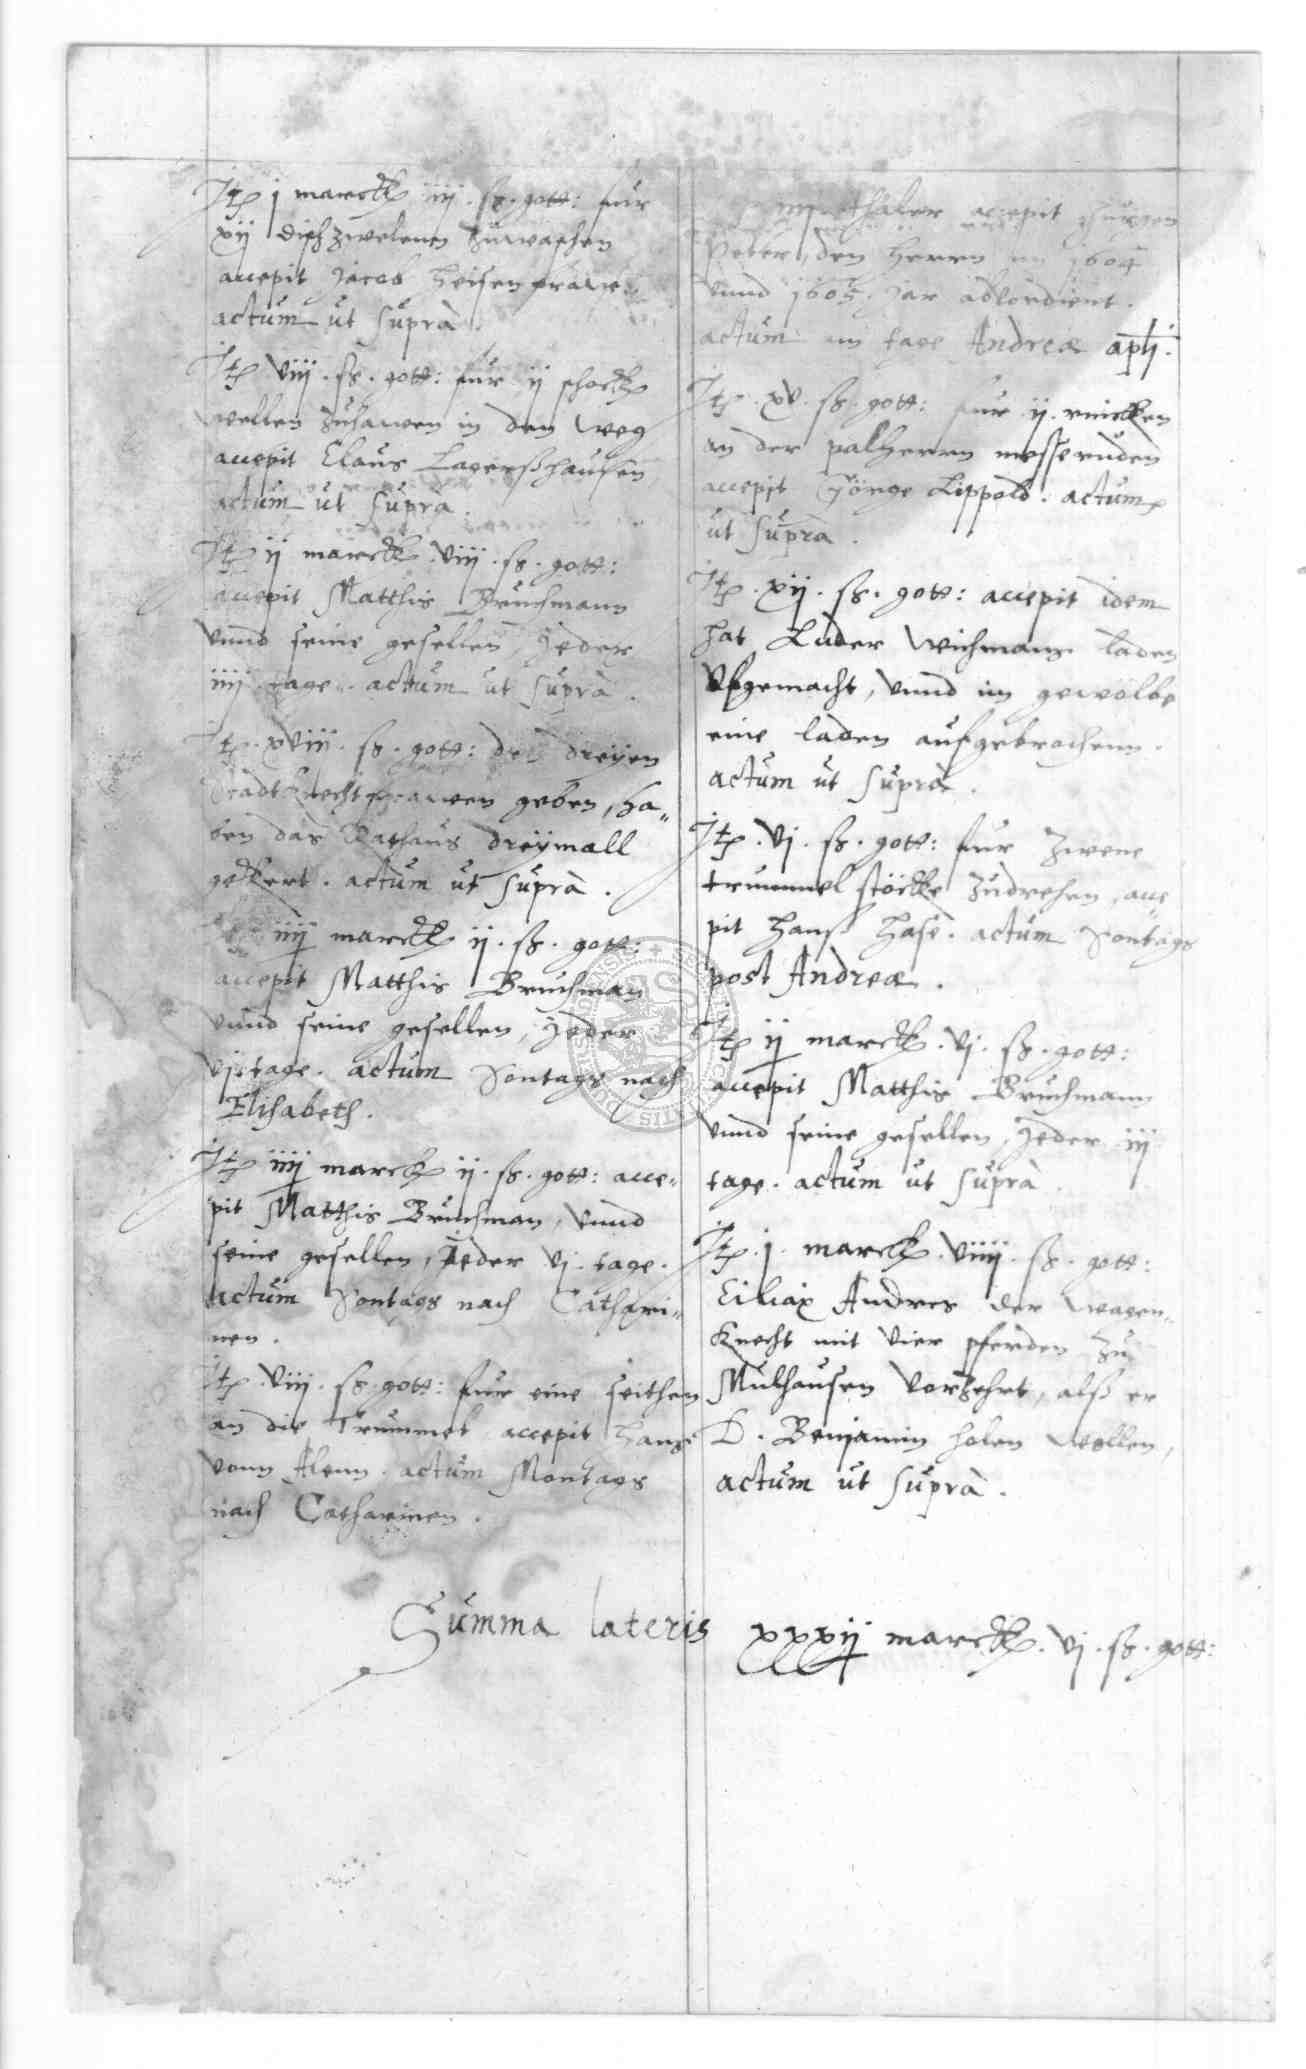 Itp j marck iiij. ß. gott: fur
xij dischzwelenn zuwaschen
accepit Jacob Heisen frawe
actum ut supra.
Itp viij. ß. gott: fur ij schock
wellen zuhawen in den weg
accepit Claus Lagerßhausen
actum ut supra.
Itp ij marck. viij. ß. gott:
accepit Matthis Bruchmann
vnnd seine gesellen, Jeder
iiij tage. actum ut supra.
Itp. xviij. ß. gott: den dreyen
Stadtknechtfrawen geben, ha„
ben das Rathaus dreymall
gekert. actum ut supra.
iiij marck ij. ß. gott:
accepit Matthis Bruchman
vnnd seine gesellen, Jeder
vj tage. actum Sontags nach
Elisabeth.
Itp iiij marck ij. ß. gott: acce„
pit Matthis Bruchman, vnnd
seine gesellen, Jeder vj. tage.
actum Sontags nach Cathari„
nen.
Itp. viij. ß. gott: fur eine seithen
an die Trummel accepit Hans
vonn Alenn. actum Montags
nach Catharinen.
thaler accepit
den herrn im 1604
vnnd 1605. Jar
actum im tage Andreæ apli.
Itp. xv. ß. gott: fur ij. rincken
an der palherrn messeruden
accepit Jörge Lippold. actum
ut supra.
Itp. xij. ß. gott: accepit idem
hat Luder Wichmans laden
vfgemacht, vnnd im gewölbe
eine laden aufgebrochenn.
actum ut supra.
Itp. vj. ß. gott: fur zwene
trummel stöcke zudrehen, acce„
pit Hanß Hase. actum Sontags
post Andreæ.
Itp ij marck. vj. ß. gott:
accepit Matthis Bruchmann
vnnd seine gesellen, Jeder iij
tage. actum ut supra.
Itp. j. marck. viiij. ß. gott:
Ciliax Andres der wagen„
knecht mit vier pferden zu
Mulhausen vorzehrt, alß er
D. Benjamin holen wollen,
actum ut supra.
Summa lateris xxxij marck. vj. ß. gott: